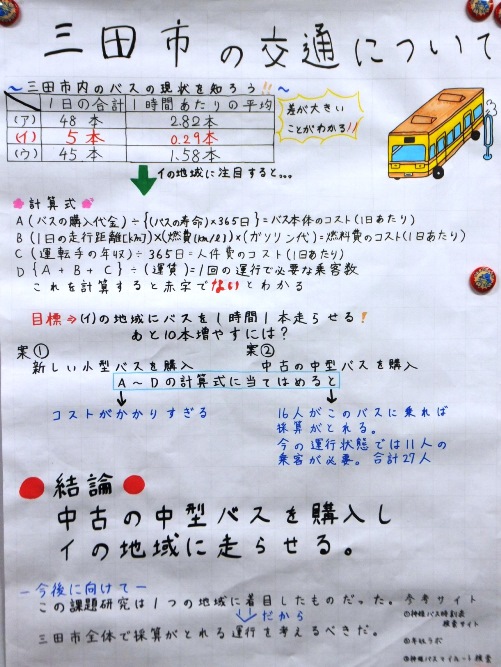 三田市の交通について
～三田市内のバスの現状を知ろう!!～
1日の合計 1時間あたりの平均
(ア) 48本 2.82本
(イ) 5本 0.29本
(ウ) 45本 1.58本
差が大きい
ことがわかる!!
イの地域に注目すると…
計算式
A (バスの購入代金)÷{(バスの寿命)×365日}=バス本体のコスト(1日あたり)
B (1日の走行距離[km])×(燃費(km/ℓ))×(ガソリン代)=燃料費のコスト(1日あたり)
C (運転手の年収)÷365日=人件費のコスト(1日あたり)
D {A+B+C}÷(運賃)=1回の運行で必要な乗客数
これを計算すると赤字でないとわかる
目標⇒(イ)の地域にバスを1時間1本走らせる!
あと10本増やすには?
案① 案②
新しい小型バスを購入 中古の中型バスを購入
A～Dの計算式に当てはめると
コストがかかりすぎる
16人がこのバスに乗れば
採算がとれる。
今の運行状態では11人の
乗客が必要。合計27人
結論
中古の中型バスを購入し
イの地域に走らせる。
―今後に向けて―
この課題研究は1つの地域に着目したものだった。
だから
三田市全体で採算がとれる運行を考えるべきだ。
参考サイト
①神姫バス時刻表
検索サイト
②年収ラボ